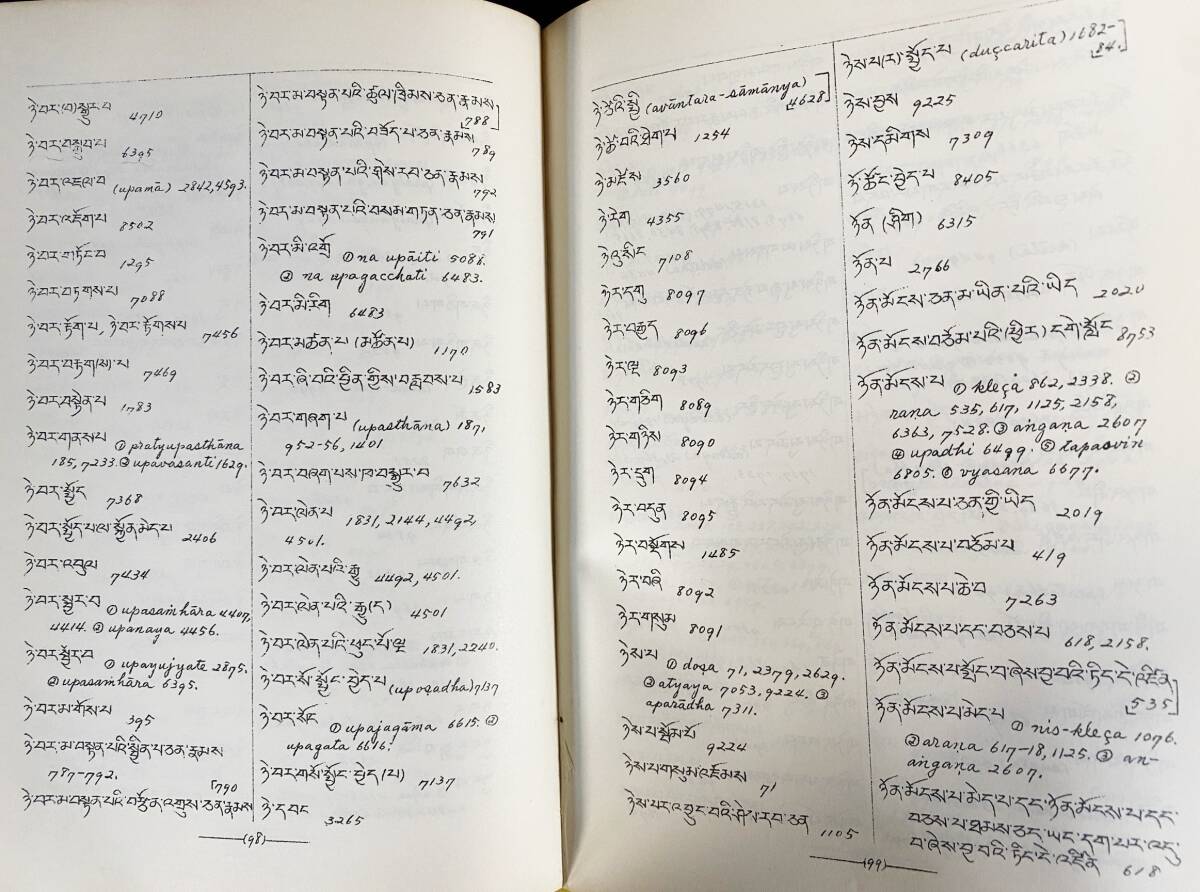 ཉེ་བར་(བ)སྒྱུར་བ 4710
ཉེ་བར་བསྒྲུབ་པ 6395
ཉེ་བར་འཇལ་བ (upamā) 2842, 4593.
ཉེ་བར་འཇོག་པ 8502
ཉེ་བར་གཏོང་བ 1295
ཉེ་བར་བཏགས་པ 7088
ཉེ་བར་རྟོག་པ, ཉེ་བར་རྟོགས་པ 7456
ཉེ་བར་བརྟག(ས)་པ 7469
ཉེ་བར་བསྟེན་པ 1783
ཉེ་བར་གནས་པ ① pratyupasthāna
185, 7233. ② upavasanti 1629.
ཉེ་བར་སྤྱོད 7368
ཉེ་བར་སྤྱོད་པ་ལ་སྐྱོན་མེད་པ 2406
ཉེ་བར་འབུལ 7434
ཉེ་བར་སྦྱར་བ ① upasaṁhāra 4407,
4414. ② upanaya 4456.
ཉེ་བར་སྦྱོར་བ ① upayujyate 2875.
② upasaṁhāra 6395.
ཉེ་བར་མ་གོས་པ 395
ཉེ་བར་མ་བསྟན་པའི་སྦྱིན་པ་ཅན་རྣམས
787-792.
ཉེ་བར་མ་བསྟན་པའི་བརྩོན་འགྲུས་ཅན་རྣམས [790
ཉེ་བར་མ་བསྟན་པའི་ཚུལ་ཁྲིམས་ཅན་རྣམས
[788]
ཉེ་བར་མ་བསྟན་པའི་བཟོད་པ་ཅན་རྣམས
789
ཉེ་བར་མ་བསྟན་པའི་ཤེས་རབ་ཅན་རྣམས
792
ཉེ་བར་མ་བསྟན་པའི་བསམ་གཏན་ཅན་རྣམས
791
ཉེ་བར་མི་འགྲོ ① na upāiti 5088.
② na upagacchati 6483.
ཉེ་བར་མི་རིག 6483
ཉེ་བར་མཚན་པ (མཚོན་པ) 1170
ཉེ་བར་ཞི་བའི་བྱིན་གྱིས་བརླབས་པ 1583
ཉེ་བར་གཞག་པ (upasthāna) 187,
952-56, 1401
ཉེ་བར་བཞག་པས་ཁ་བསྒྱུར་བ 7632
ཉེ་བར་ལེན་པ 1831, 2144, 4492,
4501.
ཉེ་བར་ལེན་པའི་རྒྱུ 4492, 4501.
ཉེ་བར་ལེན་པའི་རྒྱུ(ད) 4501
ཉེ་བར་ལེན་པའི་ཕུང་པོ་ལྔ 1831, 2240.
ཉེ་བར་སོ་སྤྱོང་བྱེད་པ (upoṣadha) 7137
ཉེ་བར་སོང ① upajagāma 6615. ②
upagata 6616.
ཉེ་བར་གསོ་སྤྱོང་བྱེད་(པ) 7137
ཉེ་དབང 3265
(98)
ཉེ་ཚེའི་སྤྱི (avāntara-sāmānya)
[4628]
ཉེ་ཚེ་བའི་ཐེག་པ 1254
ཉེ་མཛེས 3560
ཉེ་རེག 4355
7108
ཉེར་དགུ 8097
ཉེར་བརྒྱད 8096
ཉེར་ལྔ 8093
ཉེར་གཅིག 8089
ཉེར་གཉིས 8090
ཉེར་དྲུག 8094
ཉེར་བདུན 8095
ཉེར་བསྡོགས 1485
ཉེར་བཞི 8092
ཉེར་གསུམ 8091
ཉེས་པ ① doṣa 71, 2379, 2629.
② atyaya 7053, 9224. ③
aparādha 7311.
ཉེས་པ་སྦོམ་པོ 9224
ཉེས་པ་གསུམ་འཇོམས 71
ཉེས་པར་འབྱུང་བའི་ཤེས་རབ་ཅན 1105
ཉེས་པ(ར)་སྤྱོད་པ (duçcarita) 1682-
[84.]
ཉེས་བྱས 9225
ཉེས་དམིགས 7309
ཉོ་ཚོང་བྱེད་པ 8405
ཉོན (ཤིག) 6315
ཉོན་པ 2766
ཉོན་མོངས་ཅན་མ་ཡིན་པའི་ཡིད 2020
ཉོན་མོངས་བཅོམ་པའི་(ཕྱིར) དགེ་སློང 8753
ཉོན་མོངས་པ ① kleça 862, 2338. ②
raṇa 535, 617, 1125, 2158,
6363, 7528. ③ aṅgaṇa 2607
④ upadhi 6499. ⑤ tapasvin
6805. ⑥ vyasana 6677.
ཉོན་མོངས་པ་ཅན་གྱི་ཡིད 2019
ཉོན་མོངས་པ་བཅོམ་པ 419
ཉོན་མོངས་པ་ཆེ་བ 7263
ཉོན་མོངས་པ་དང་བཅས་པ 618, 2158.
ཉོན་མོངས་པ་སྤྱོང་བ་ཞེས་བྱ་བའི་ཏིང་ངེ་འཛིན
[535]
ཉོན་མོངས་པ་མེད་པ ① nis-kleça 1076.
② araṇa 617-18, 1125. ③ an-
aṅgaṇa 2607.
ཉོན་མོངས་པ་མེད་པ་དང་ཉོན་མོངས་པ་དང་
བཅས་པ་ཐམས་ཅད་ཡང་དག་པར་འདུ་
བ་ཞེས་བྱ་བའི་ཏིང་ངེ་འཛིན 618
(99)